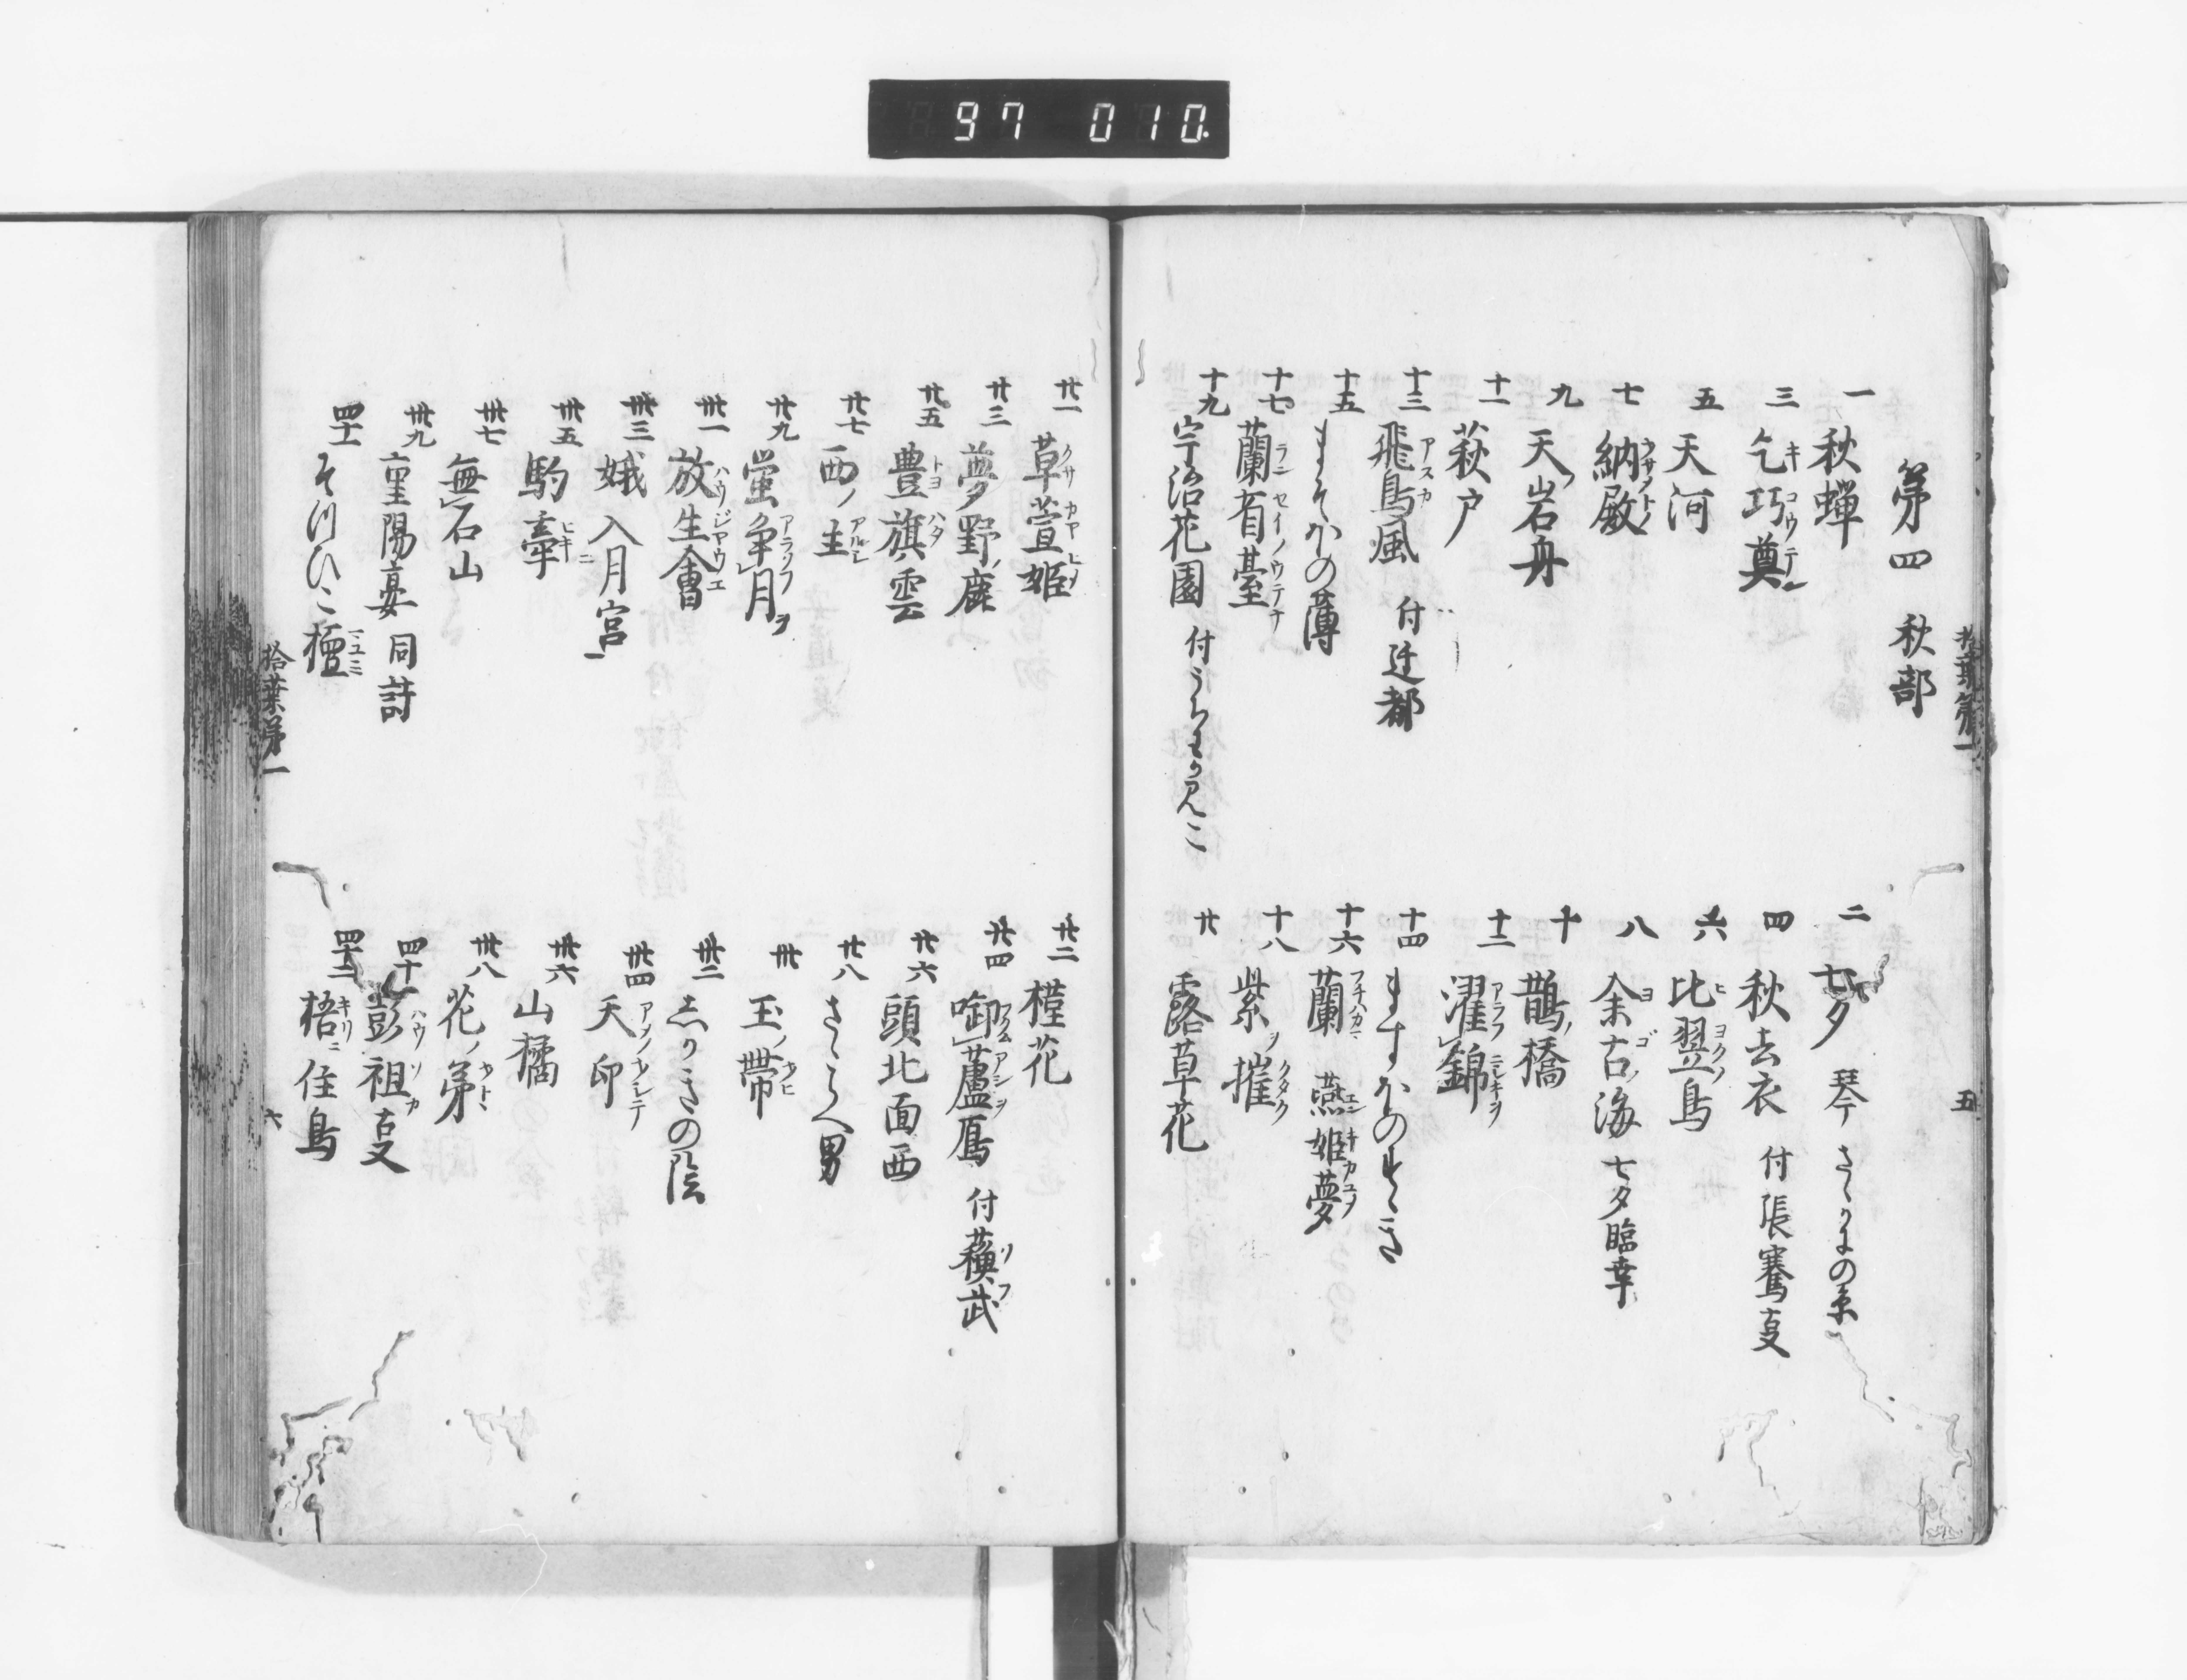 97 010.
拾葉第一
五
第四 秋部
一 秋蟬
二 七夕 琴 さゝかにの糸
三 乞巧奠
四 秋去衣 付張騫事
五 天河
六 比翌鳥
七 納殿
八 余古ノ海 七夕臨幸
九 天ノ岩舟
十 鵲ノ橋
十一 萩戸
十二 濯錦
十三 飛鳥風 付迁都
十四 ますほのすゝき
十五 まそほの薄
十六 蘭 燕姫夢
十七 蘭省䑓
十八 紫ヲ摧
十九 宇治花園 付うち
廿 露草花
廿一 草萱姫
廿二 槿花
廿三 夢野ノ鹿
廿四 啣蘆鴈 付蘓武
廿五 豊旗雲
廿六 頭北面西
廿七 西ノ主
廿八 さゝらへ男
廿九 蛍争月
卅 玉ノ帯
卅一 放生會
卅二 しかきの陰
卅三 娥入月宮
卅四 天印
卅五 駒牽
卅六 山橘
卅七 無石山
卅八 花ノ弟
卅九 重陽宴 同詩
四十 彭祖事
四十一 そつひこ檀
四十二 梧ニ住鳥
拾葉第一
六